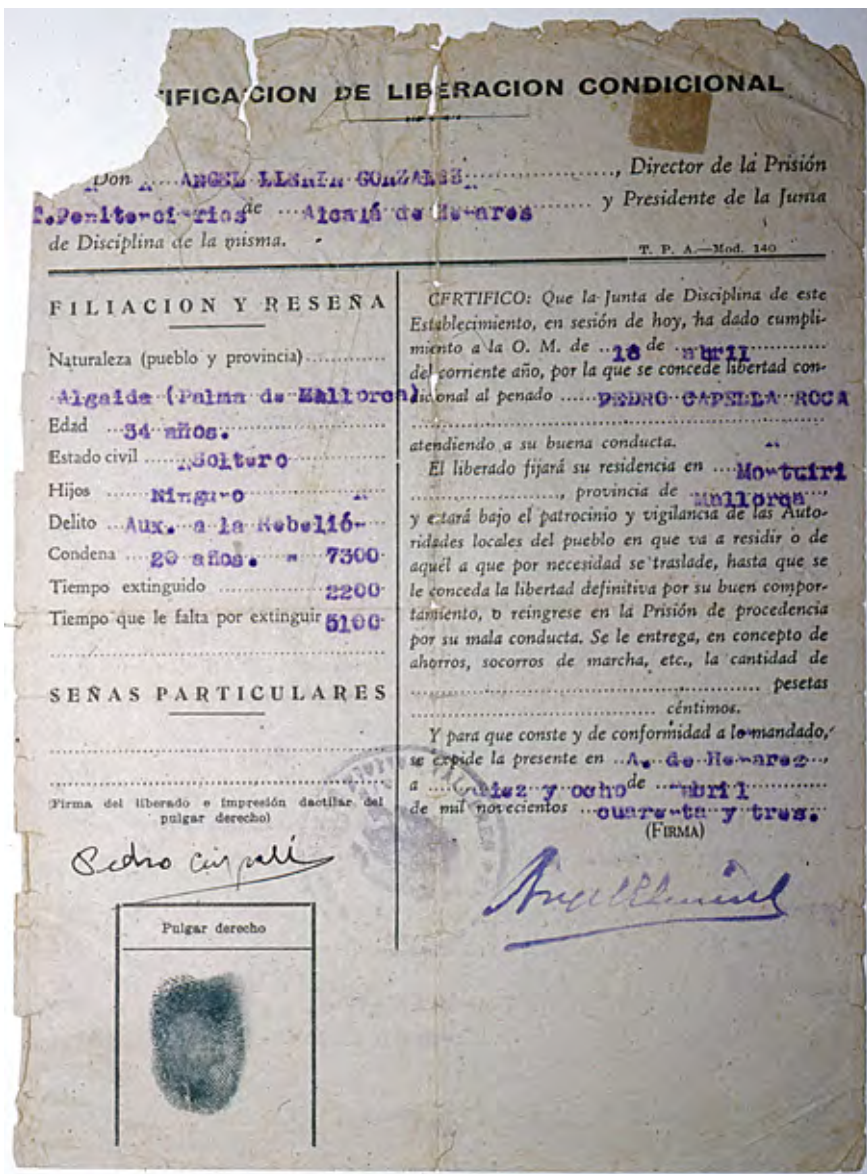 IFICACION DE LIBERACION CONDICIONAL
Don ANGEL GONZALEZ, Director de la Prisión
T.Penitenciarios de Alcalá de Henares y Presidente de la Junta
de Disciplina de la misma.
T. P. A.—Mod. 140
FILIACION Y RESEÑA
Naturaleza (pueblo y provincia)
Algaida (Palma de Mallorca)
Edad 34 años.
Estado civil Soltero
Hijos Ninguno
Delito Aux. a la Rebelión
Condena 20 años. = 7300
Tiempo extinguido 2200
Tiempo que le falta por extinguir 5100
SEÑAS PARTICULARES
(Firma del liberado e impresión dactilar del
pulgar derecho)
Pedro
Pulgar derecho
CERTIFICO: Que la Junta de Disciplina de este
Establecimiento, en sesión de hoy, ha dado cumpli-
miento a la O. M. de 18 de abril
del corriente año, por la que se concede libertad con-
dicional al penado PEDRO CAPELLA ROCA
atendiendo a su buena conducta.
El liberado fijará su residencia en Montuiri
, provincia de Mallorca,
y estará bajo el patrocinio y vigilancia de las Auto-
ridades locales del pueblo en que va a residir o de
aquél a que por necesidad se traslade, hasta que se
le conceda la libertad definitiva por su buen compor-
tamiento, o reingrese en la Prisión de procedencia
por su mala conducta. Se le entrega, en concepto de
ahorros, socorros de marcha, etc., la cantidad de
pesetas
céntimos.
Y para que conste y de conformidad a lo mandado,
se expide la presente en A. de Henares,
a diez y ocho de abril
de mil novecientos cuarenta y tres.
(FIRMA)